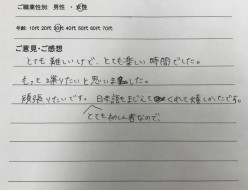 ご職業性別: 男性 ・ 女性
年齢: 10代 20代 30代 40代 50代 60代 70代
ご意見・ご感想
とても難しいけど、とても楽しい時間でした。
もっと踊りたいと思いました。
頑張りたいです。日本語もまじえてくれて嬉しかったです。
とても初心者なので、